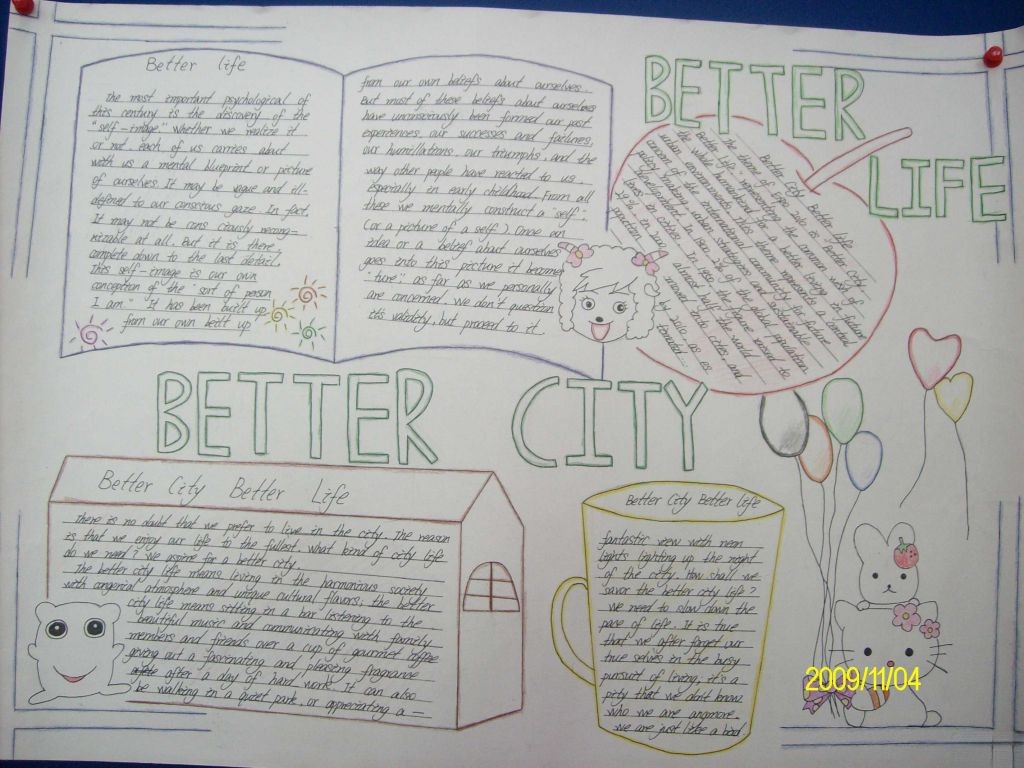 Better life
the most important psychological of
this century is the discovery of the
"self-image" whether we realize it
or not, each of us carries about
with us a mental blueprint or picture
of ourselves. It may be vague and ill-
defined to our conscious gaze. In fact,
It may not be cons ciously recong-
nizable at all. But it is there,
complete down to the last detail.
This self-image is our own
conception of the "sort of person
I am." It has been built up
from our own beilt up
from our own beliefs about ourselves.
But most of these beliefs about ourselves
have unconsciously been formed our past
experiences, our successes and failures,
our humiliations, our triumphs, and the
way other people have reacted to us,
Especially in early childhood. From all
these we mentally construct a "self",
(or a picture of a self). Once an
idea or a belief about ourselves
goes into this picture it become
"ture", as far as we personally
are concerned. We don't question
it's validity, but proceed to it
BETTER
LIFE
Better City Better Life
The theme of Expo 2010 is "Better City
Better Life" representing the common wish of
the whole humankind for a better living in future
urban environments. This theme represents a central
concern of the international community for future
policy making, urban strategies and sustainable
development. In 1800, 2% of the global population
lived in cities. In 1950, the figure raised to
29%, in 2000, almost half the world
population moved into cities, and
by 2010, as
BETTER CITY
Better City Better Life
there is no doubt that we prefer to live in the city. The reason
is that we enjoy our life to the fullest. What kind of city life
do we need? We aspire for a better city.
The better city life means living in the harmonious society
with congenial atmosphere and unique cultural flavors, the better
city life means sitting in a bar listening to the
beautiful music and communicating with family
members and friends over a cup of gourmet coffee
giving out a fascinating and pleasing fragrance
after a day of hard work. It can also
be walking in a quiet park, or appreciating a —
Better City Better life
fantastic view with neon
lights lighting up the night
of the city. How shall we
savor the better city life?
We need to slow down the
pace of life. It is true
that we after forget our
true selves in the busy
pursuit of living, it's a
pity that we don't know
who we are anymore.
We are just like a bird.
2009/11/04